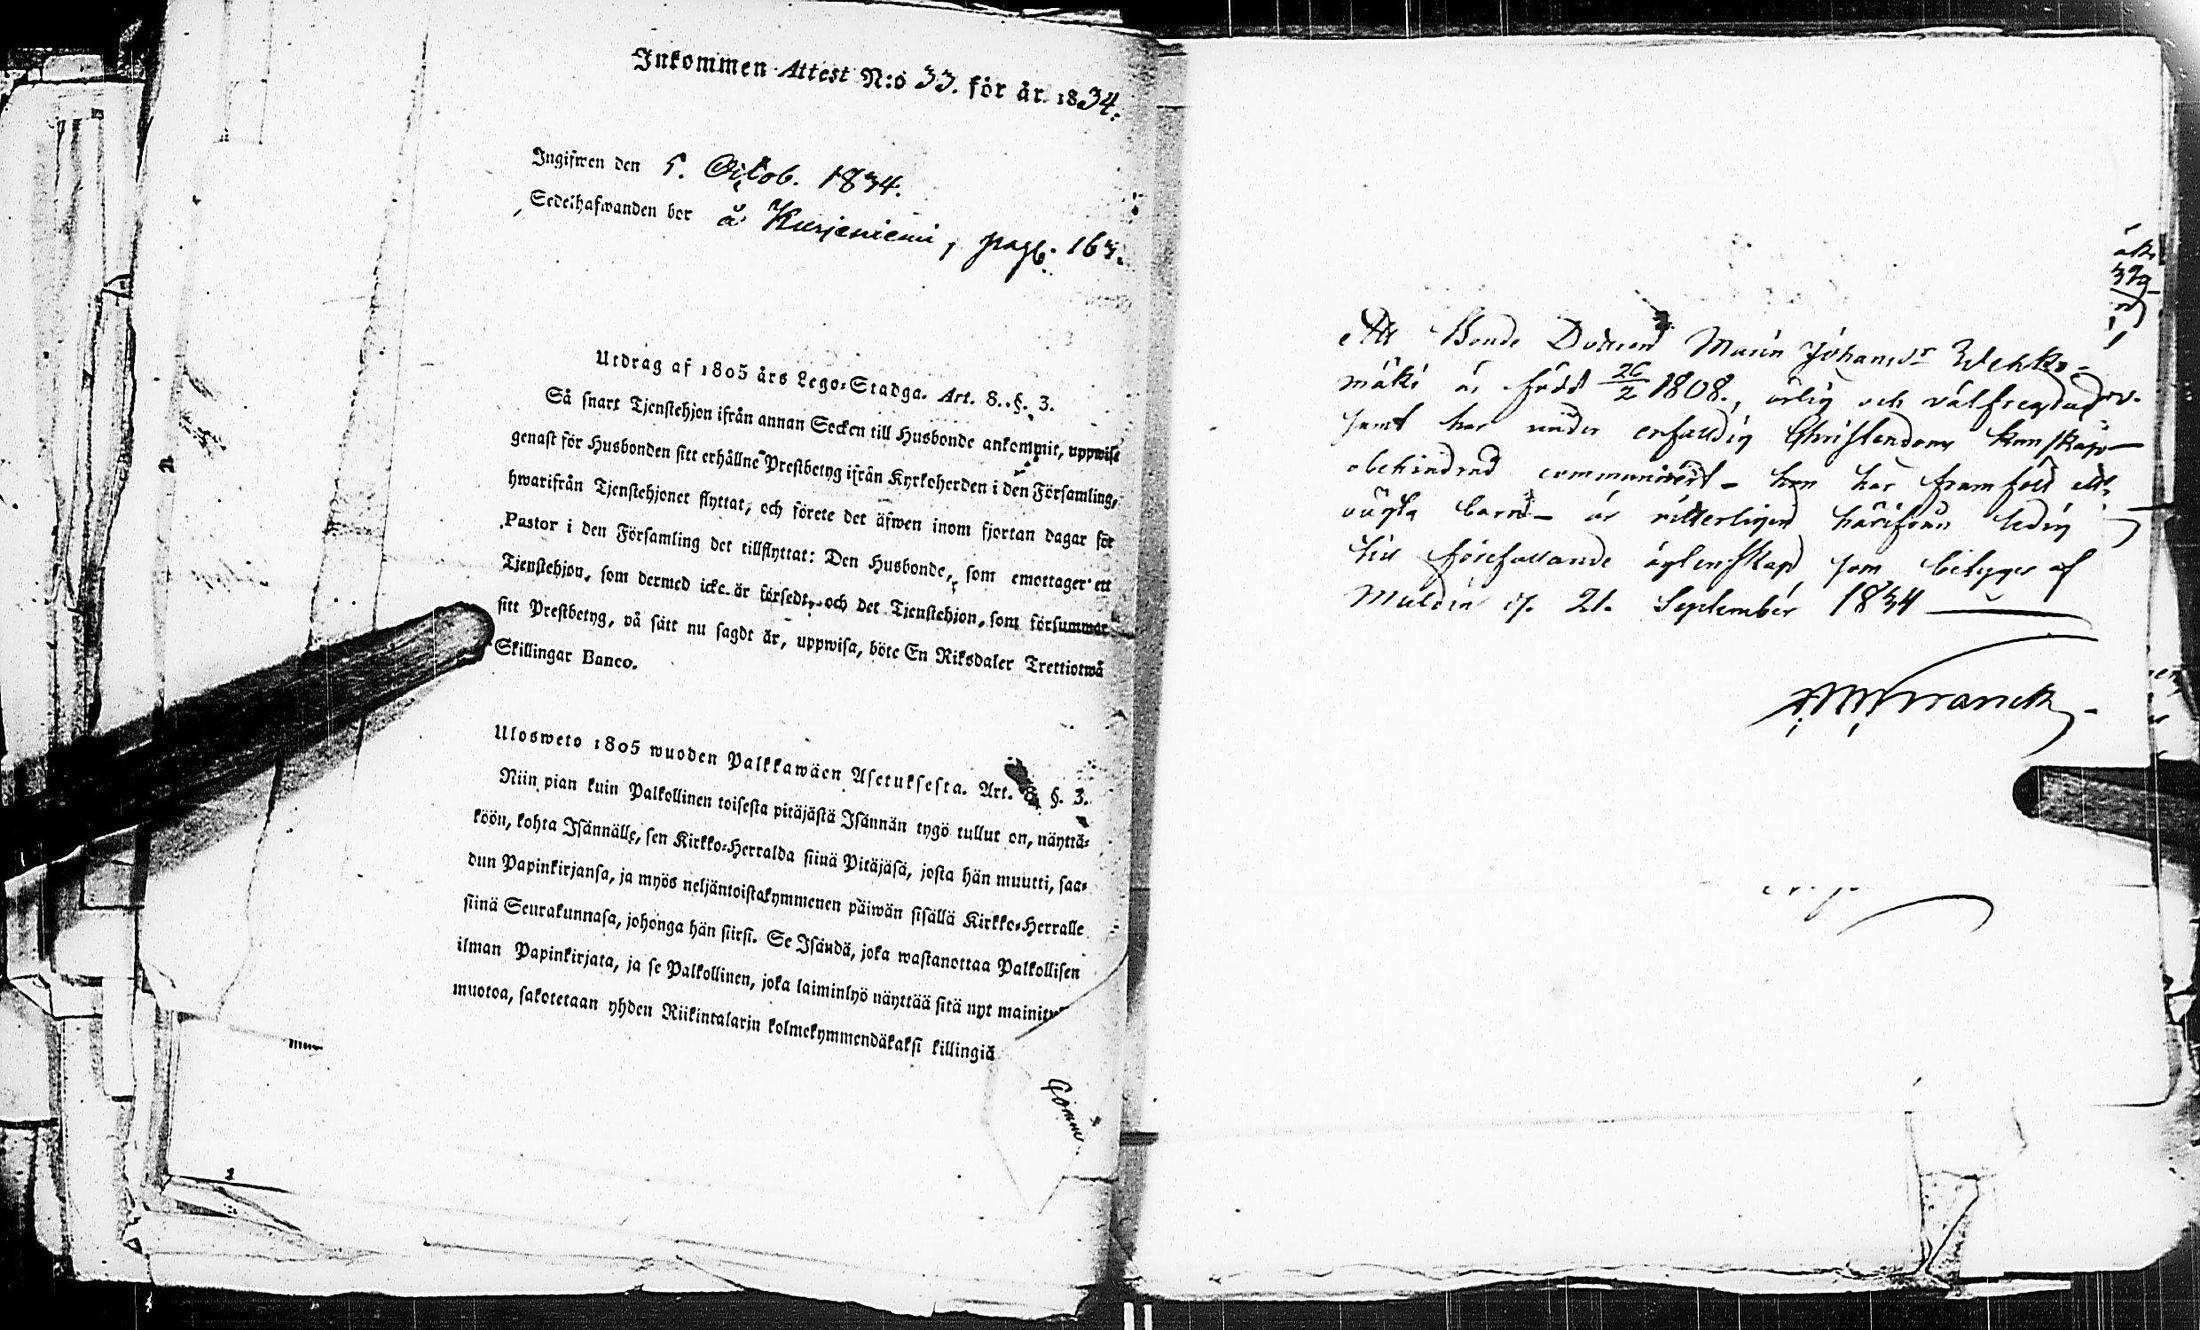 Inkommen Attest N:o 33. för år 1834.
Ingifwen den 5. Octob. 1834.
Sedelhafwanden bor å Kurjeniemi, pag. 163.
Utdrag af 1805 års Lego-Stadga. Art. 8. §. 3.
Så snart Tjenstehjon ifrån annan Socken till Husbonde ankommit, uppwise
genast för Husbonden sitt erhållne Prestbetyg ifrån Kyrkoherden i den Församling,
hwarifrån Tjenstehjonet flyttat, och förete det äfwen inom fjortan dagar för
Pastor i den Församling det tillflyttat: Den Husbonde, som emottager ett
Tjenstehjon, som dermed icke är försedt, och det Tjenstehjon, som försummar
sitt Prestbetyg, på sätt nu sagdt är, uppwisa, böte En Riksdaler Trettiotwå
Skillingar Banco.
Ulosweto 1805 wuoden Palkkawäen Asetuksesta. Art. 8. §. 3.
Niin pian kuin Palkollinen toisesta pitäjästä Isännän tygö tullut on, näyttä-
köön, kohta Isännälle, sen Kirkko-Herralda siinä Pitäjäsä, josta hän muutti, saa-
dun Papinkirjansa, ja myös neljäntoistakymmenen päiwän sisällä Kirkko-Herralle
siinä Seurakunnasa, johonga hän siirsi. Se Isändä, joka wastanottaa Palkollisen
ilman Papinkirjata, ja se Palkollinen, joka laiminlyö näyttää sitä nyt mainitu
muotoa, sakotetaan yhden Riikintalarin kolmekymmendäkaksi killingiä
Att Bonde Dottren Maria Johansdr Wehko-
mäki är född 26/2 1808., ärlig och välfregdad
samt har under enfaldig Christendoms kunskap
obehindrad communicerat - hon har framfödt ett
oägta barn - är vitterligen härifrån ledig
till förefallande ägtenskap som betygas af
Muldia d. 21. September 1834
Franck